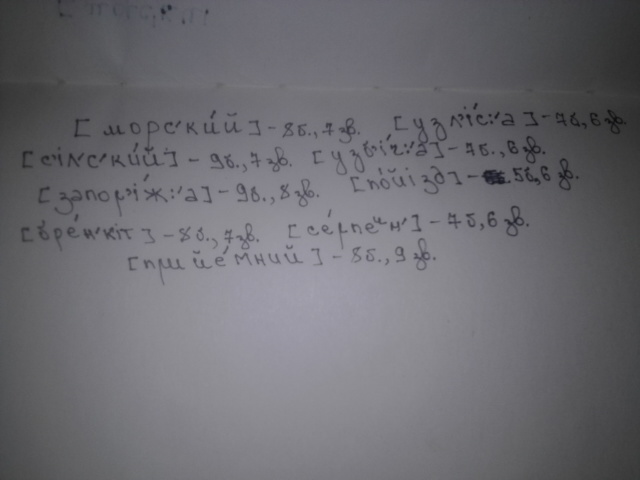 [морс׳ки́й] - 8б., 7зв. [узл׳і́с׳:а] - 7б, 6 зв.
[с׳іл׳с׳ки́й] - 9б., 7зв. [узв׳і́ч׳:а] - 7б., 6зв.
[запор׳і́ж׳:а] - 9б., 8зв. [по́йізд] - 5б, 6 зв.
[бре́н׳кіт] - 8б., 7зв. [се́рпеин׳] - 7б, 6 зв.
[прийе́мний] - 8б., 9 зв.